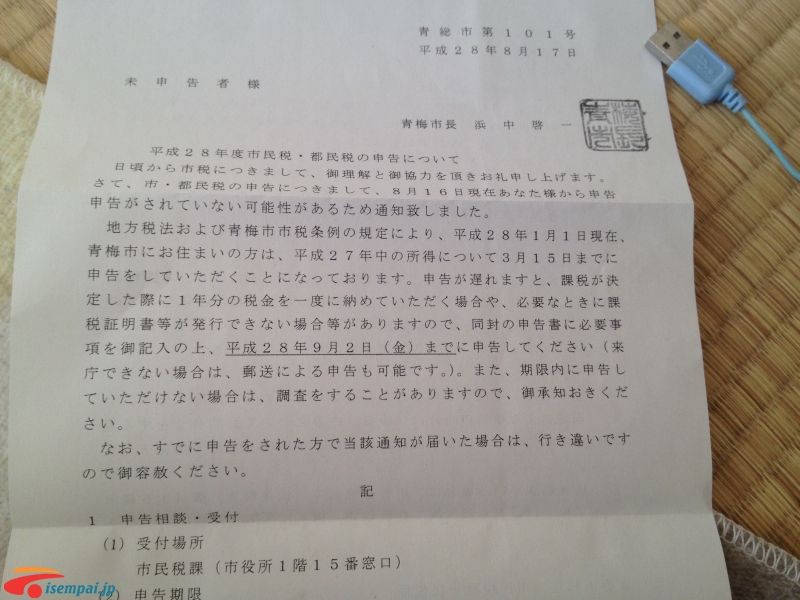 青総市第１０１号
平成２８年８月１７日
未申告者様
青梅市長　浜中啓一
青梅市長
平成２８年度市民税・都民税の申告について
日頃から市税につきまして、御理解と御協力を頂きお礼申し上げます。
さて、市・都民税の申告につきまして、８月１６日現在あなた様から申告
申告がされていない可能性があるため通知致しました。
地方税法および青梅市市税条例の規定により、平成２８年１月１日現在、
青梅市にお住まいの方は、平成２７年中の所得について３月１５日までに
申告をしていただくことになっております。申告が遅れますと、課税が決
定した際に１年分の税金を一度に納めていただく場合や、必要なときに課
税証明書等が発行できない場合等がありますので、同封の申告書に必要事
項を御記入の上、平成２８年９月２日（金）までに申告してください（来
庁できない場合は、郵送による申告も可能です。）。また、期限内に申告し
ていただけない場合は、調査をすることがありますので、御承知おきくだ
さい。
なお、すでに申告をされた方で当該通知が届いた場合は、行き違いです
ので御容赦ください。
記
１　申告相談・受付
(1) 受付場所
市民税課（市役所１階１５番窓口）
(2) 申告期限
isempai.jp